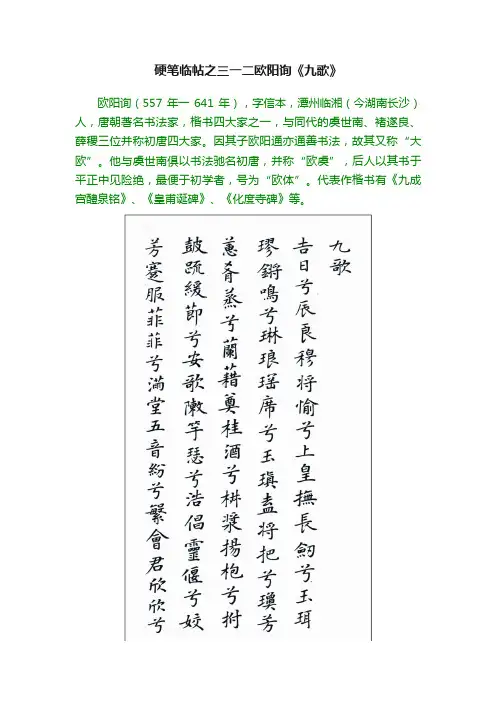 硬笔临帖之三一二欧阳询《九歌》
欧阳询（557 年－641 年），字信本，潭州临湘（今湖南长沙）
人，唐朝著名书法家，楷书四大家之一，与同代的虞世南、褚遂良、
薛稷三位并称初唐四大家。因其子欧阳通亦通善书法，故其又称“大
欧”。他与虞世南俱以书法驰名初唐，并称“欧虞”，后人以其书于
平正中见险绝，最便于初学者，号为“欧体”。代表作楷书有《九成
宫醴泉铭》、《皇甫诞碑》、《化度寺碑》等。
九歌
吉日兮辰良穆将愉兮上皇撫長劒兮玉珥
璆鏘鳴兮琳琅瑶席兮玉瑱盍将把兮瓊芳
蕙肴蒸兮蘭藉奠桂酒兮椒漿揚枹兮拊
鼓疏緩節兮安歌敶竽瑟兮浩倡靈偃兮姣
芳蹇服菲菲兮满堂五音紛兮繁會君欣欣兮